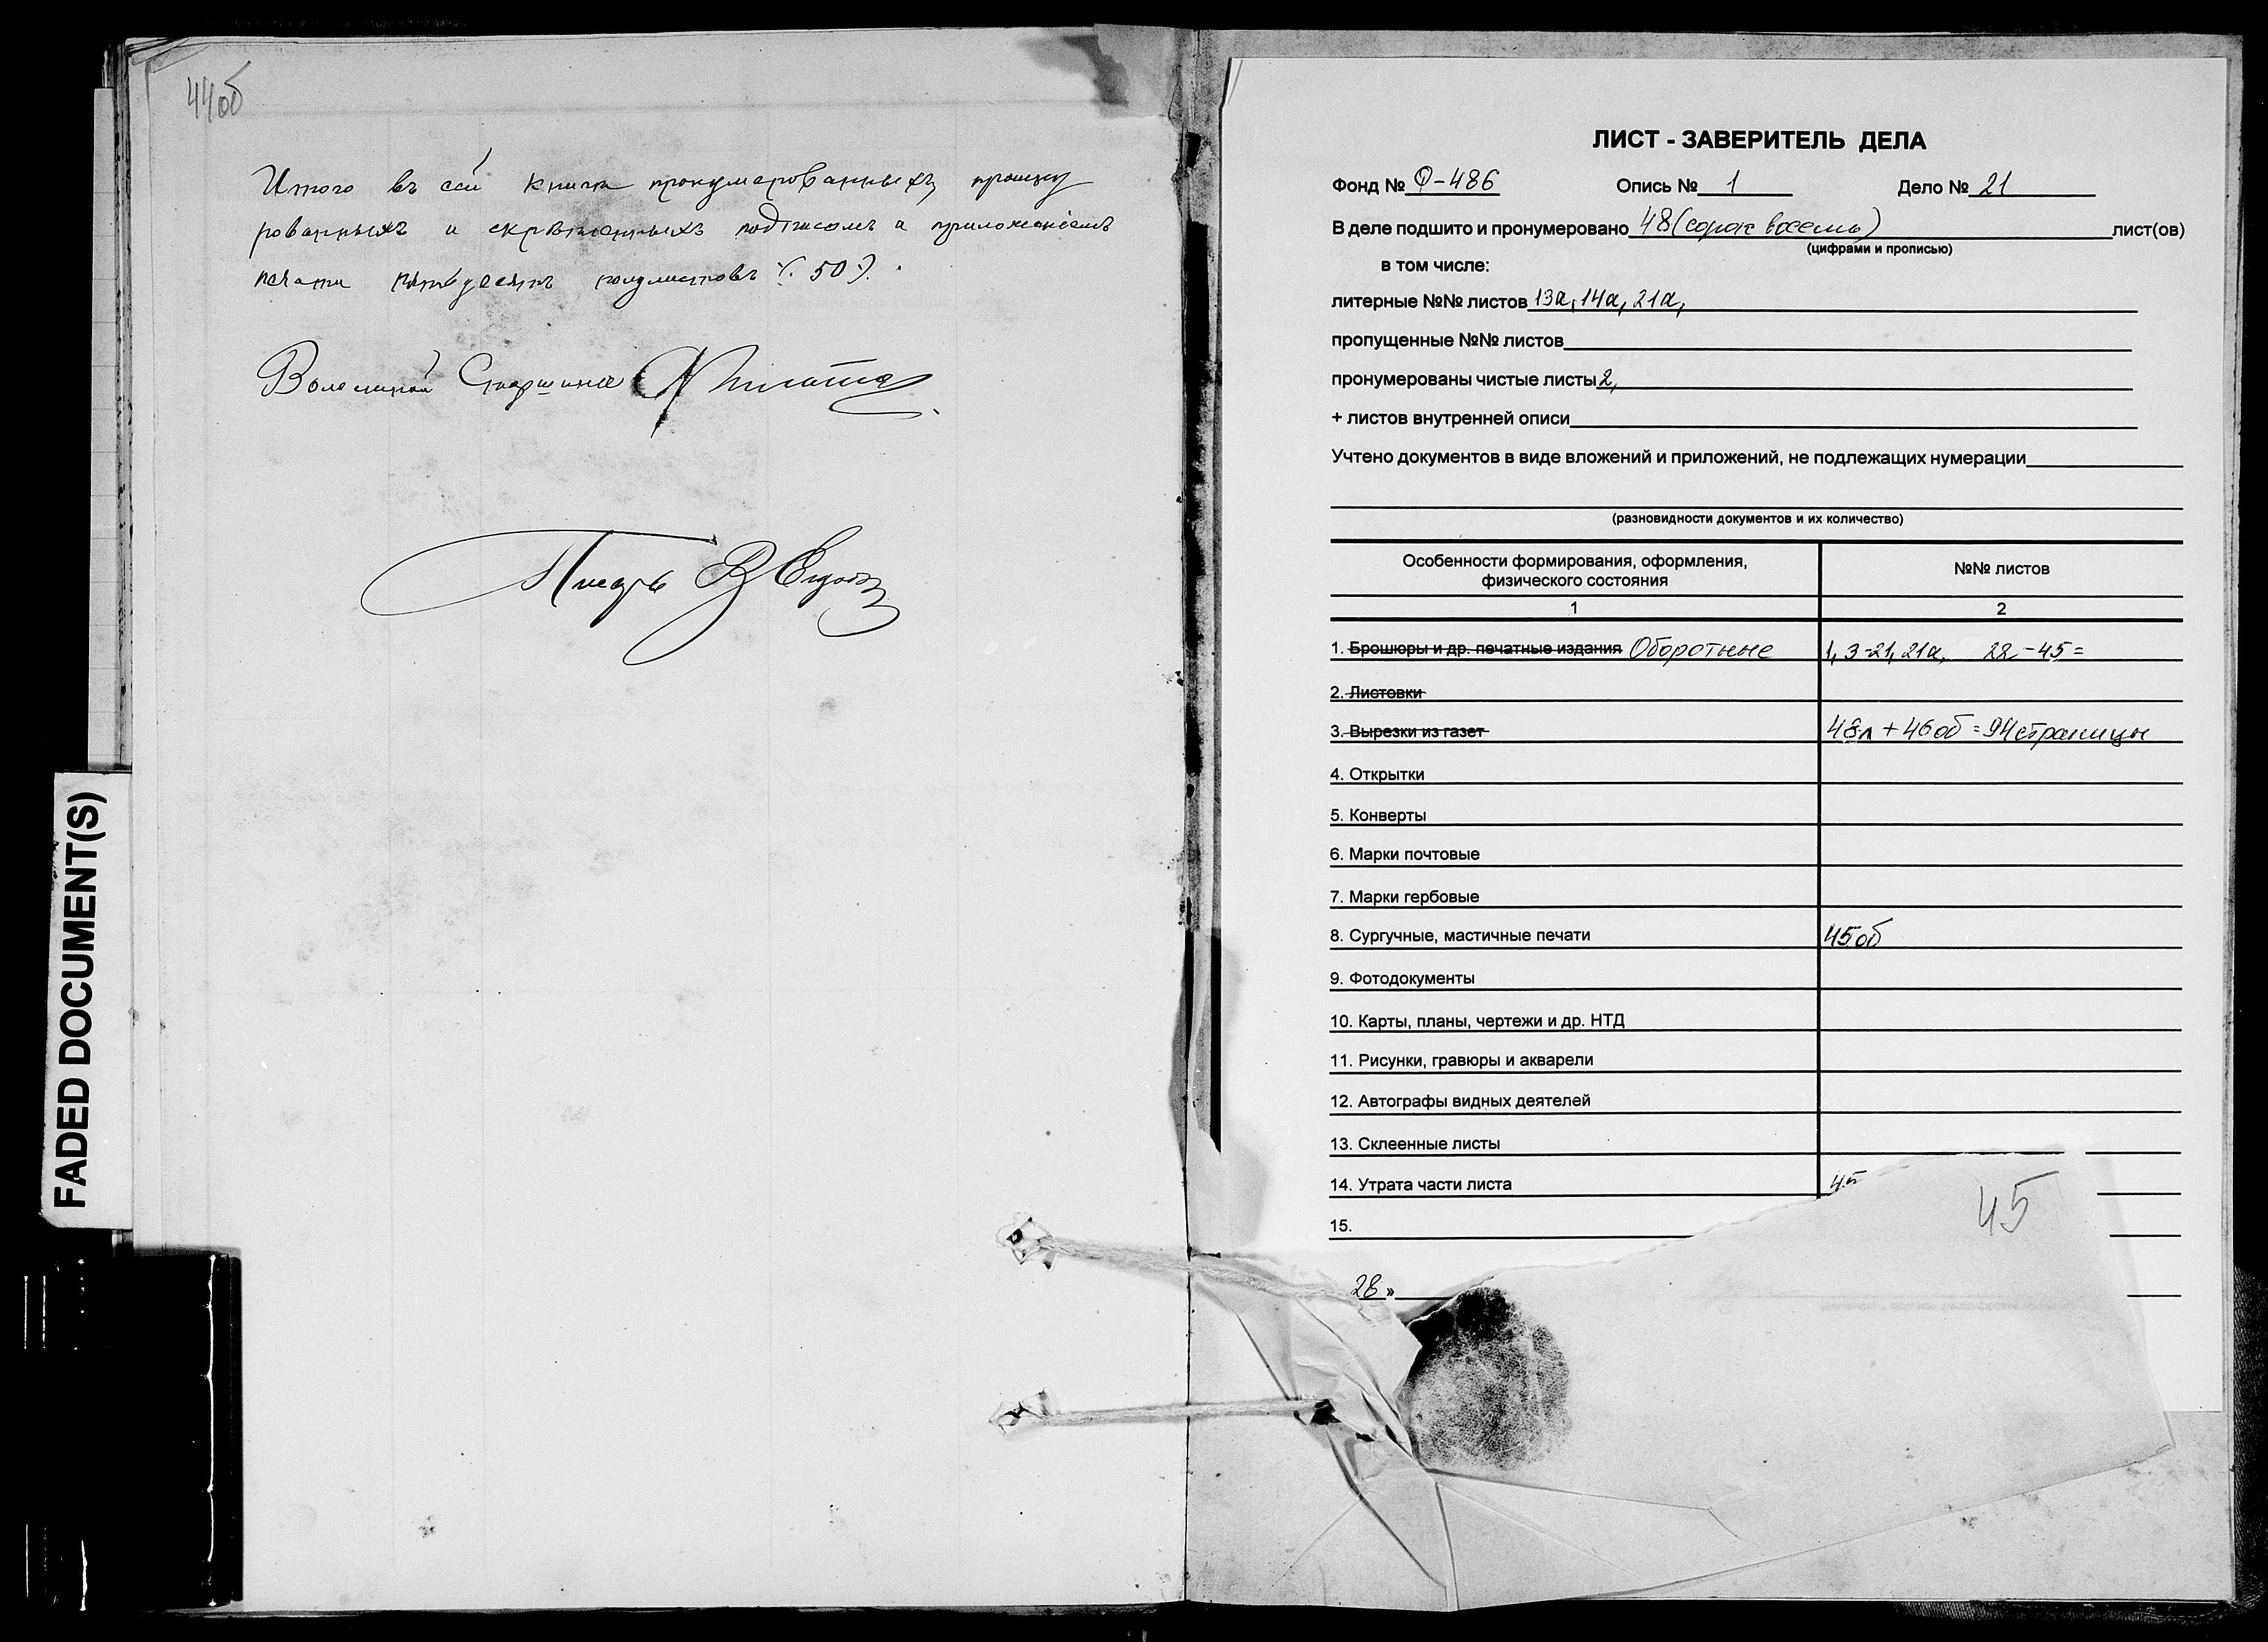 44об
Итого въ сей книги пронумерованныхъ, прошну
рованныхъ и скрѣпленныхъ подписомъ и приложеніемъ
печати пятьдесятъ полулистовъ /. 50 /.
Волостной Старшина
Писарь В
FADED DOCUMENT(S)
ЛИСТ - ЗАВЕРИТЕЛЬ ДЕЛА
Фонд № Ф-486 Опись № 1 Дело № 21
В деле подшито и пронумеровано 48 (сорок восемь) лист(ов)
(цифрами и прописью)
в том числе:
литерные №№ листов 13а, 14а, 21а,
пропущенные №№ листов
пронумерованы чистые листы 2,
+ листов внутренней описи
Учтено документов в виде вложений и приложений, не подлежащих нумерации
(разновидности документов и их количество)
Особенности формирования, оформления, №№ листов
физического состояния
1 2
1. Брошюры и др. печатные издания Оборотные 1, 3-21, 21а, 22-45=
2. Листовки
3. Вырезки из газет 48л + 46об = 94 страницы
4. Открытки
5. Конверты
6. Марки почтовые
7. Марки гербовые
8. Сургучные, мастичные печати 45об
9. Фотодокументы
10. Карты, планы, чертежи и др. НТД
11. Рисунки, гравюры и акварели
12. Автографы видных деятелей
13. Склеенные листы
14. Утрата части листа 45
45
15.
28 »